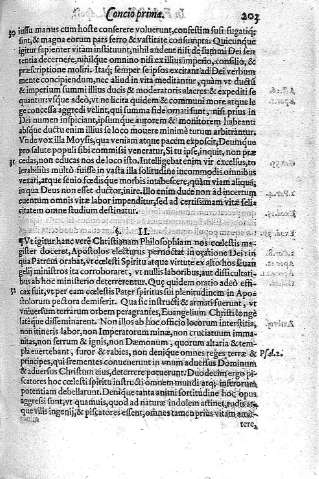 Concio prima.
203
30 iussu manus cum hoste conserere voluerunt, confestim fusi fugatiq;
sunt, & magna eorum pars ferro & vastitate consumpta. Quicunque
igitur sapienter vitam instituunt, nihil audent nisi de summi Dei sen
tentia decernere, nihilque omnino nisi ex illius imperio, consilio, &
præscriptione moliri. Itaq; semper seipsos excitant ad Dei verbum
mente concipiendum, nec aliud in vita meditantur, quàm vt ductu
& imperium summi illius ducis & moderatoris alacres & expediti se
quantur: vsque adeò, vt ne licita quidem & communi more atque le
ge concessa aggredi velint, qui summa fide
Dei numen inspiciant, ipsumque autorem & monitorem habeant:
absque ductu enim illius se loco mouere minimè tutum arbitrantur.
Vnde vox illa Moysis, qua veniam atque pacem exposcit, Deumque
pro salute populi commissi veneratur, Si tu ipse, inquit, non præ
cedas, non educas nos de loco isto. Intelligebat enim vir excelsus, to
lerabilius multò fuisse in vasta illa solitudine incommodis omnibus
vexari, atque senio sœdísque inopia intabescere, quàm viam aliquã,
in qua Deus non esset ductor, inire. Illo enim duce non ad incertum
euentum omnis vitæ labor impenditur, sed ad certissimam vitæ feli
citatem omne studium destinatur.
§. II.
¶Vt igitur hanc verè Christianam Philosophiam nos cœlestis ma-
gister doceat, Apostolos electurus pernoctat in oratione Dei: in
qua Patrem orabat, vt cœlesti Spiritu atque virtute ex alto hos Euan
gelij ministros ita corroboraret, vt nullis laboribus, aut difficultati
bus ab hoc ministerio deterrerentur. Quæ quidem oratio adeò effi-
cax fuit, vt per eam cœlestis Pater Spiritus sui plenitudinem in Apo
stolorum pectora demiserit. Qua sic instructi & armati fuerunt, vt
vniuersum terrarum orbem peragrantes, Euangelium Christi longè
latéque disseminarent. Non illos ab hoc officio locorum interstitia,
non itineris labor, non Imperatorum minæ, non cruciatuum imma-
nitas, non ferrum & ignis, non Dæmonum, quorum altaria & tem-
pla euertebant, furor & rabies, non denique omnes reges terræ & Psal.2.
principes, qui frementes conuenerunt in vnum aduersus Dominum
& aduersus Christum eius, deterrere potuerunt. Duodecim ergo pi-
scatores hoc cœlesti spiritu instructi omnem mundi atq; inferorum
potentiam debellarunt. Denique tanta animi fortitudine hoc opus
aggressi sunt, vt quamuis, quod ad naturæ indolem attinet, rudis at-
que vilis ingenij, & piscatores essent, omnes tamen prius vitam amit-
tere,